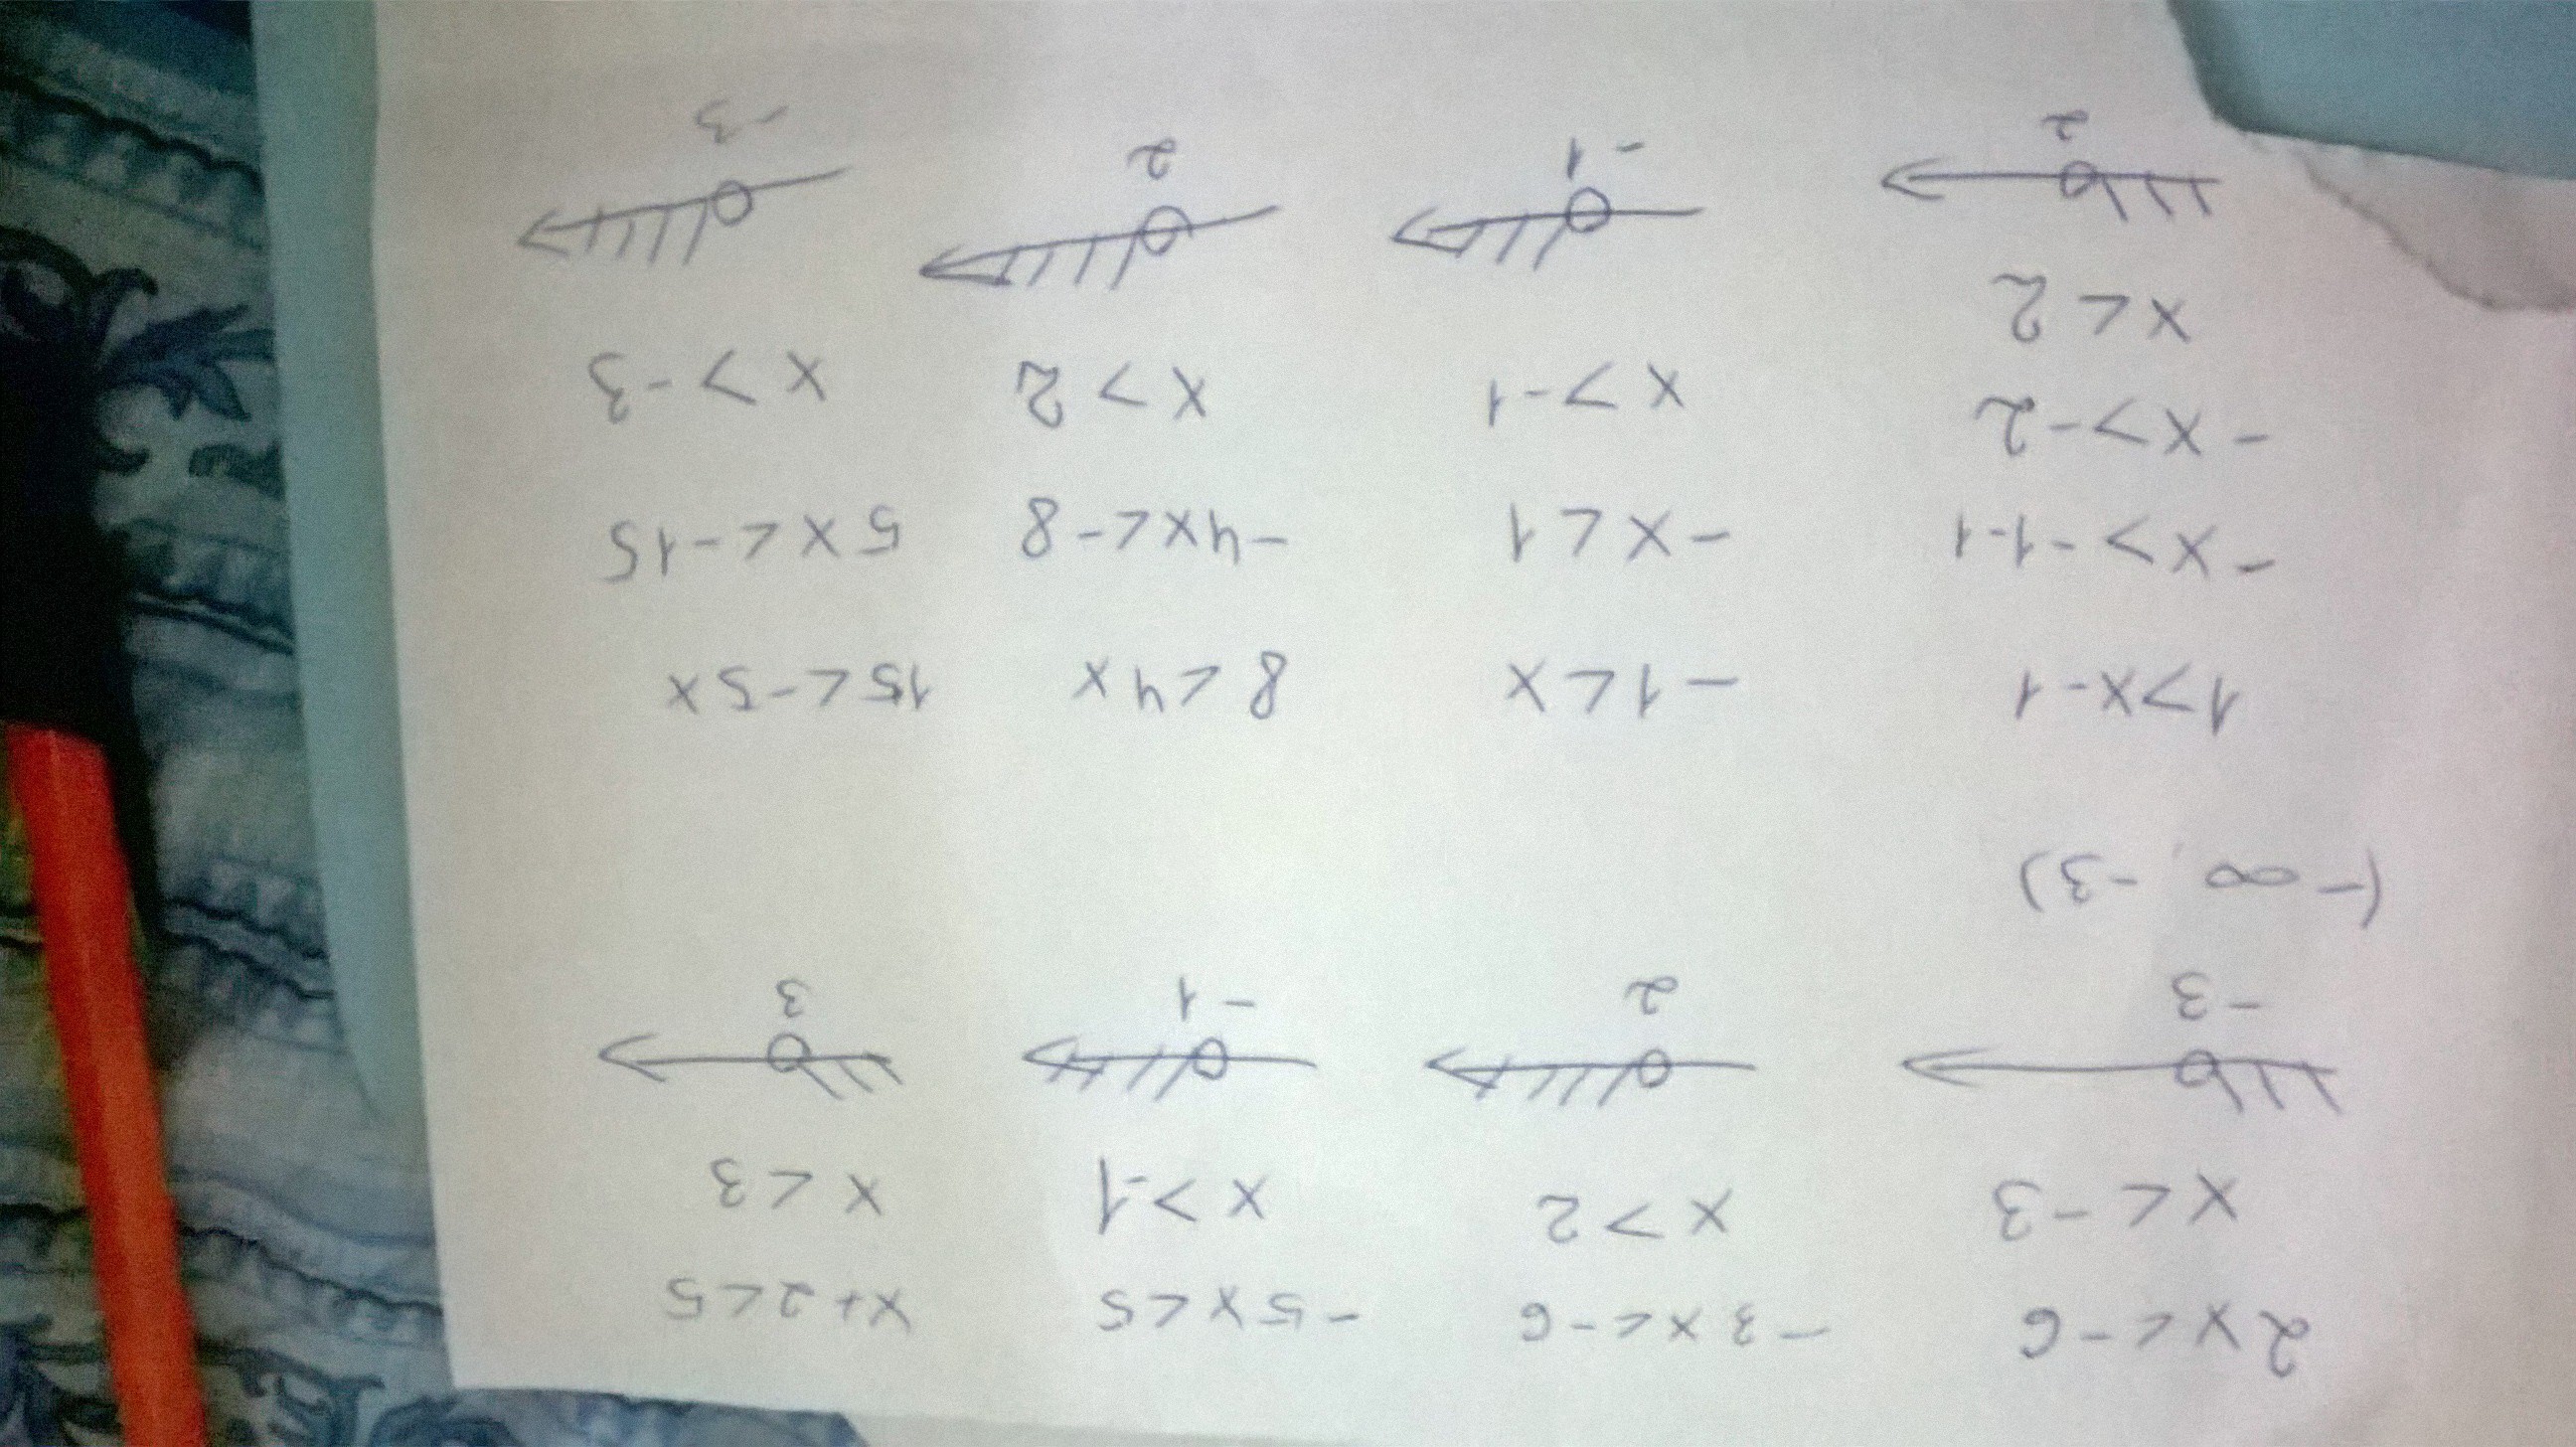 2x<-6   -3x<-6   -5x<5   x+2<5
x<-3   x>2   x>-1   x<3
-3   2   -1   3
(-∞, -3)
1>x-1   -1<x   8<4x   15<-5x
-x>-1-1   -x<1   -4x<-8   5x<-15
-x>-2   x>-1   x>2   x>-3
x<2
2   -1   2   -3